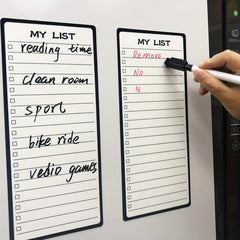 MY LIST
reading time
clean room
sport
bike ride
vedio games
MY LIST
Remove
No
N